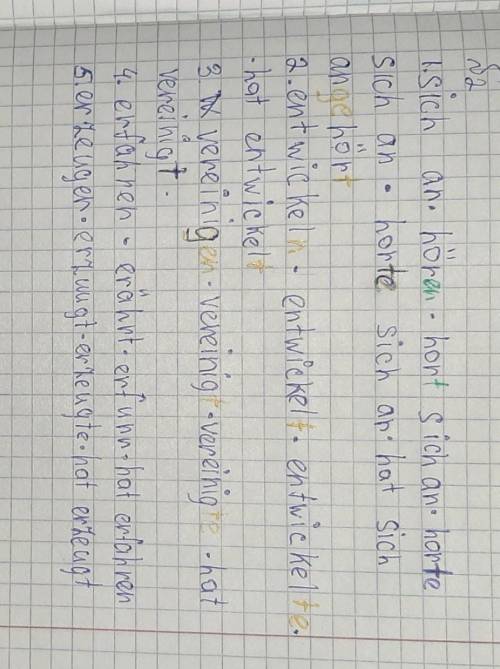 №2
1. Sich an · hören · hort sich an · horte
sich an · horte sich an · hat sich
angehört
2. entwickeln · entwickelt · entwickelte ·
· hat entwickelt
3 vereinigen · vereinigt · vereinigte · hat
vereinigt ·
4. erfahren · erährt · erfuhr · hat erfahren
5. erzeugen · erzuugt · erzeugte · hat erzeugt